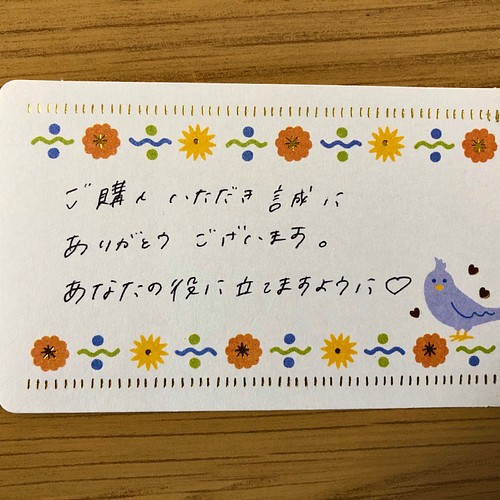 ご購入いただき誠に
ありがとうございます。
あなたの役に立てますように♡